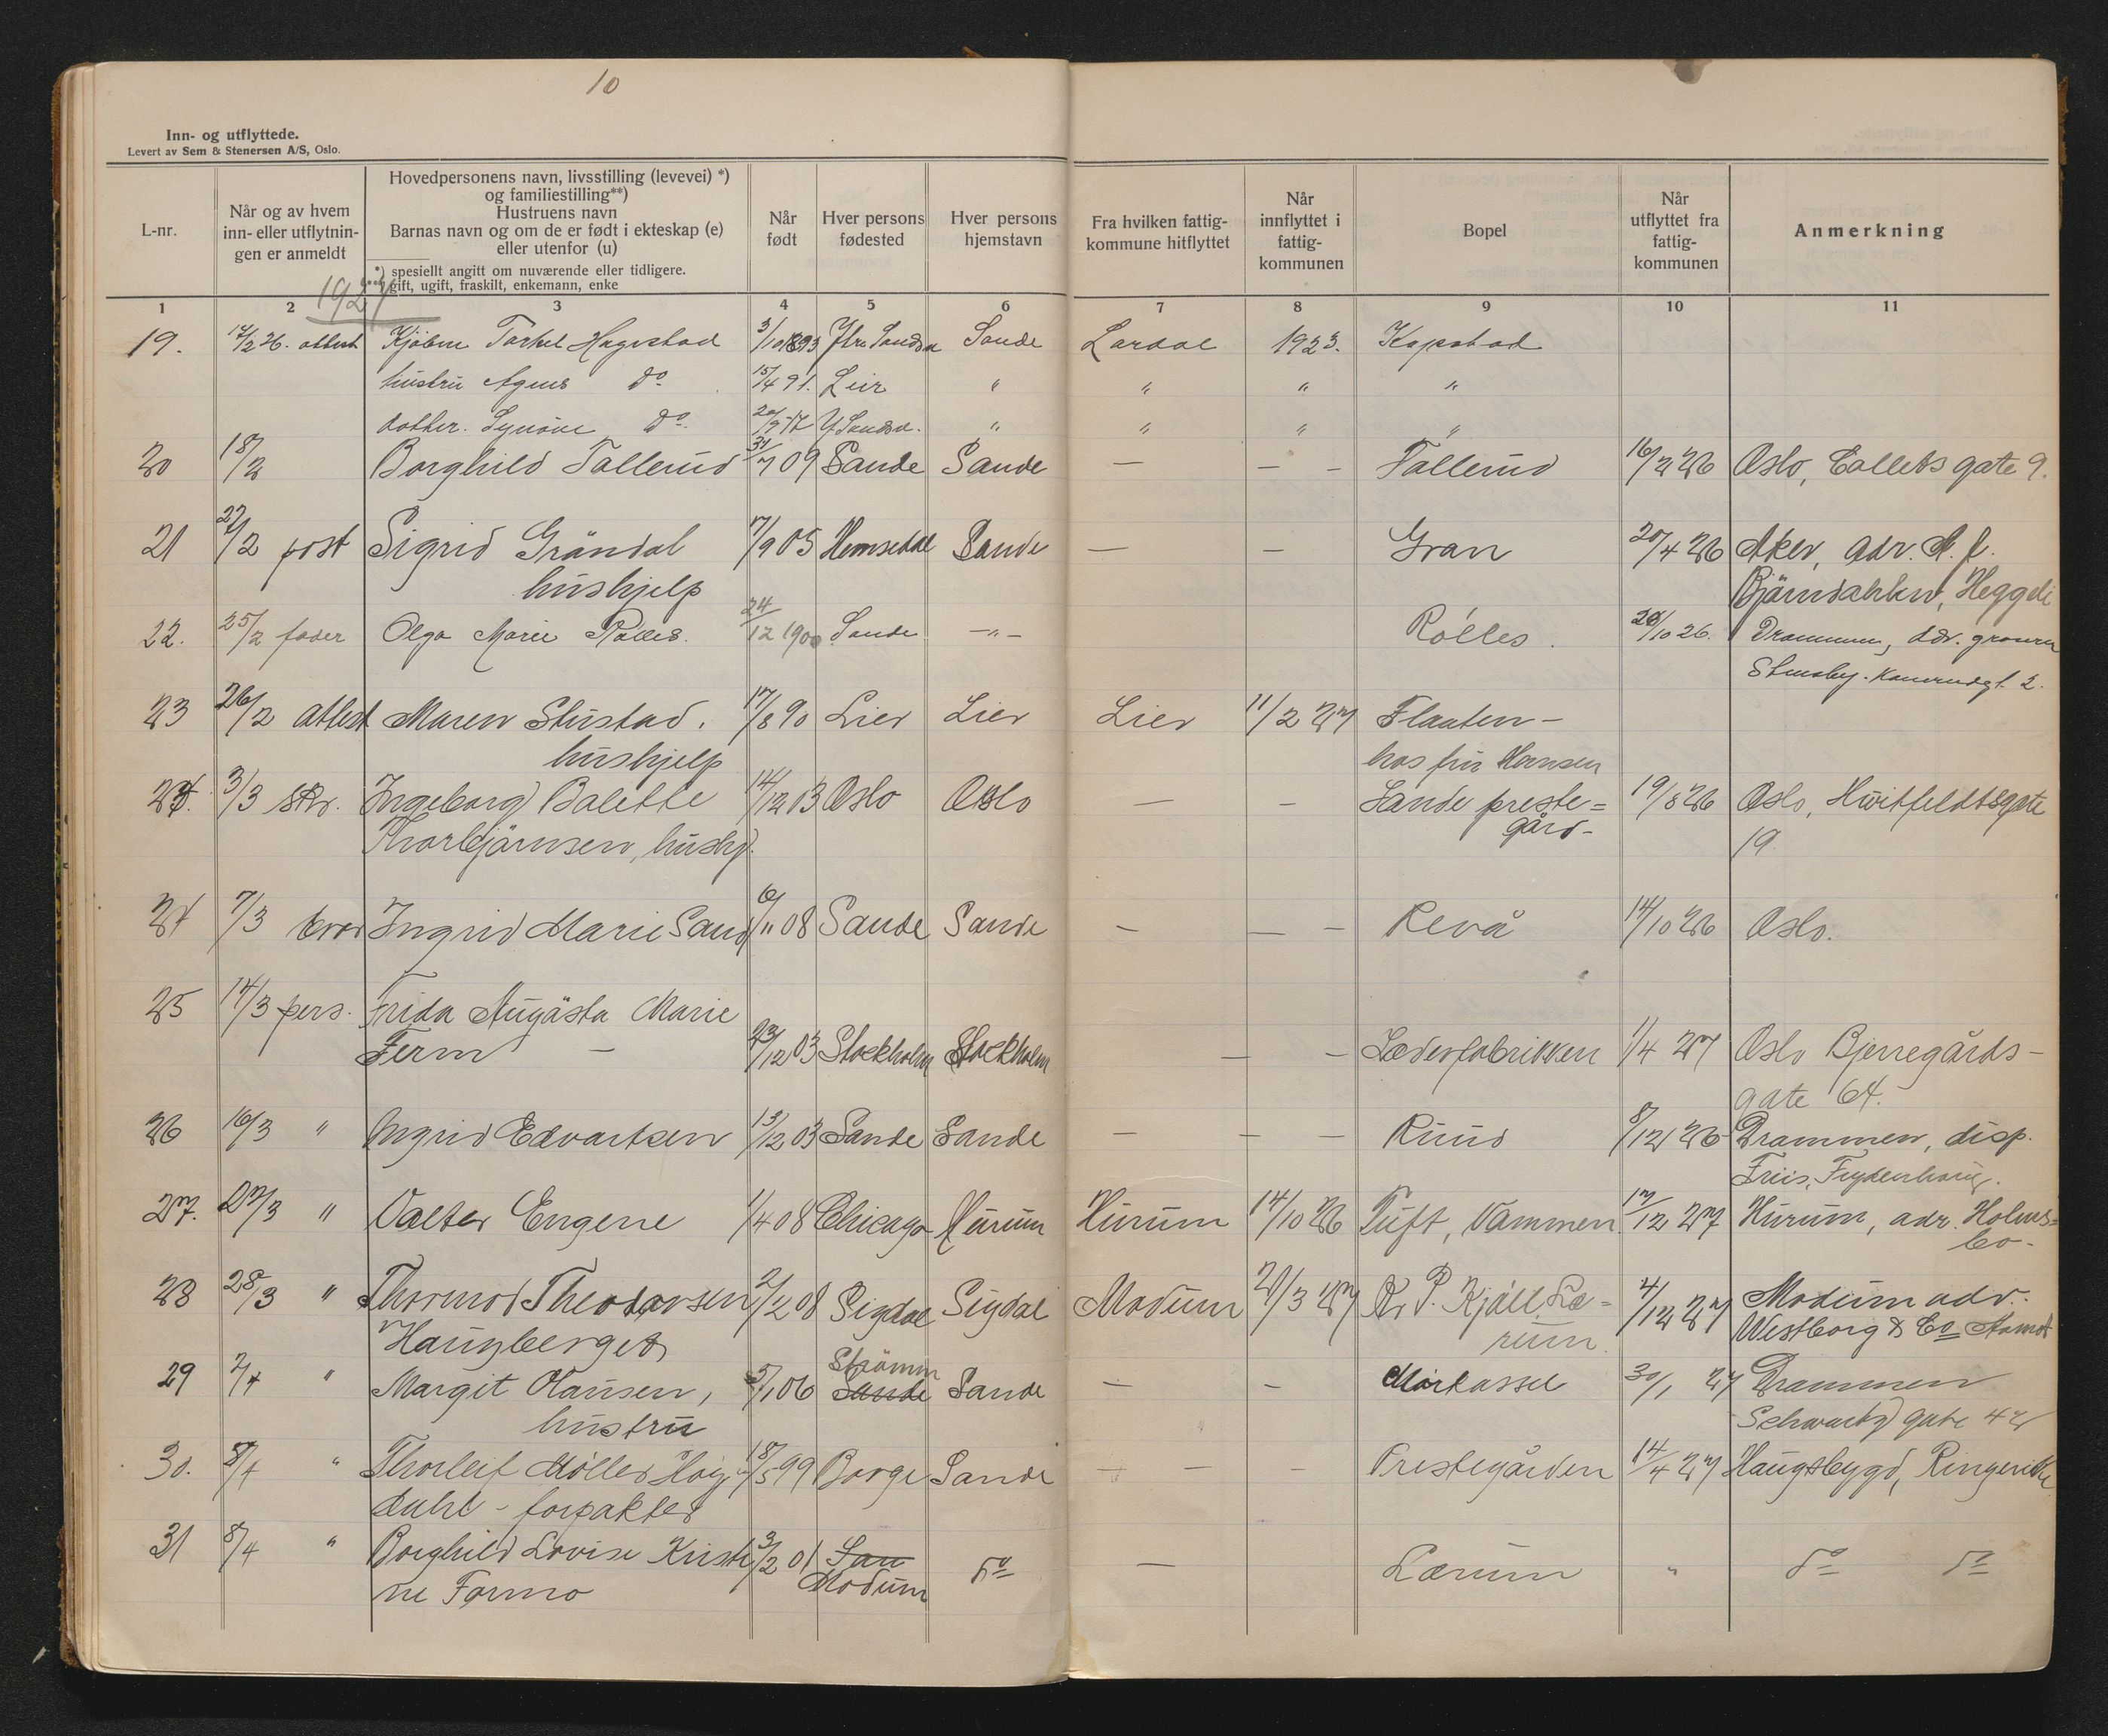 10
Inn- og utflyttede.
Levert av Sem & Stenersen A/S, Oslo.
L-nr.
Når og av hvem
inn- eller utflytnin-
gen er anmeldt
Hovedpersonens navn, livsstilling (levevei) *)
og familiestilling**)
Hustruens navn
Barnas navn og om de er født i ekteskap (e)
eller utenfor (u)
*) spesiellt angitt om nuværende eller tidligere.
**) gift, ugift, fraskilt, enkemann, enke
Når
født
Hver persons
fødested
Hver persons
hjemstavn
Fra hvilken fattig-
kommune hitflyttet
Når
innflyttet i
fattig-
kommunen
Bopel
Når
utflyttet fra
fattig-
kommunen
Anmerkning
1 2 3 4 5 6 7 8 9 10 11
1927
19. 14/2 26. attest Kjøbm Torkel Hagestad 3/10 1893 Sande Lardal 1923. Kopstad
hustru Agnes do 15/4 91. Lier " " " "
datter. Synøve do 17 Y Sandsv. " " " "
20 18/2 Borghild Tallerud 31/7 09 Sande Sande — — — Tallerud 16/2 26 Oslo, Colletts gate 9.
21 22/2 post Sigrid Gröndal 7/9 05 Hemsedal Sande — — Gran 20/4 26 Aker, adr. A. f.
hushjelp Heggeli
22. 25/2 fader Olga Marie Rølles. 24/12 1900 Sande —"— Rølles. 26/10 26. Drammen, adr.
2.
23 26/2 attest Maren Stustad. 17/8 90 Lier Lier Lier 11/2 27 Flaaten —
hushjelp hos fru Hansen
24. 3/3 skr. Ingeborg Balette 14/12 03 Oslo Oslo — — Sande preste= 19/8 26 Oslo, Hvitfeldtsgate
Thorbjörnsen, hushj. gård — 19
24 7/3 Ingrid Marie Sand 6/11 08 Sande Sande — — — Revå 14/10 26 Oslo.
25 14/3 pers. Frida Augusta Marie
Ferm — 23/12 03 Stockholm Stockholm — — Læderfabrikken 1/4 27 Oslo Bjerregårds-
gate 64.
26 16/3 " Ingrid Edvartsen 13/12 03 Sande Sande — — — Ruud 8/12 26 Drammen, disp.
Friis, Frydenhaug.
27. 27/3 " Valter Engene 1/4 08 Chicago Hurum Hurum 14/10 26 Tuft, Vammen 17/12 27 Hurum, adr. Holms=
bo -
28 28/3 " Thormod Theodorsen 2/2 08 Sigdal Sigdal Modum 21/3 27 P. Kjöll, Læ= 4/12 27 Modum adr.
Haugberget rum Westborg & Co Aamot
29 2/4 " Margit Olausen, 5/1 06 Strömm Sande Sande — — Mörkassel 30/1 27 Drammen
hustru Schwartz gate 42
30. 8/4 " Thorleif Möller Høy- 18/5 99 Borge Sande — — — Prestegården 14/4 27 Haugsbygd, Ringerike
dahl - forpakter
31 8/4 " Borghild Lovise Kristi 3/2 01 San do — Lærum " do do
ne Formo Modum